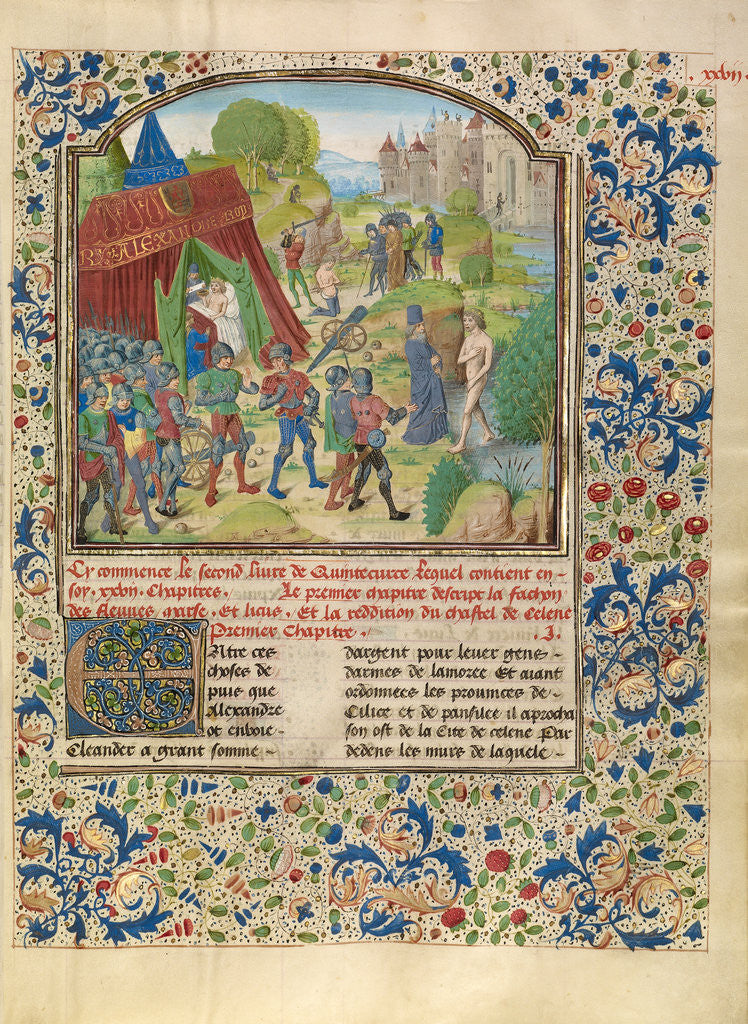 . xxvij .
REX ALEXANDRE
Cy commence le second livre de Quintecurce lequel contient en-
soy. xxvij. Chapitres. Le premier chapitre descript la fachon
des fleuves marse. Et licus. Et la reddicion du chastel de Celene
Premier Chapitre. .J.
Entre ces
choses de
puis que
Alexandre
ot enuoie-
Cleander a grant somme-
dargent pour leuer gens-
darmes de lamoree Et aiant
ordonnees les prouinces de-
Cilice et de panfilee il aprocha
son ost de la Cite de celene Par
dedens les murs de laquele-